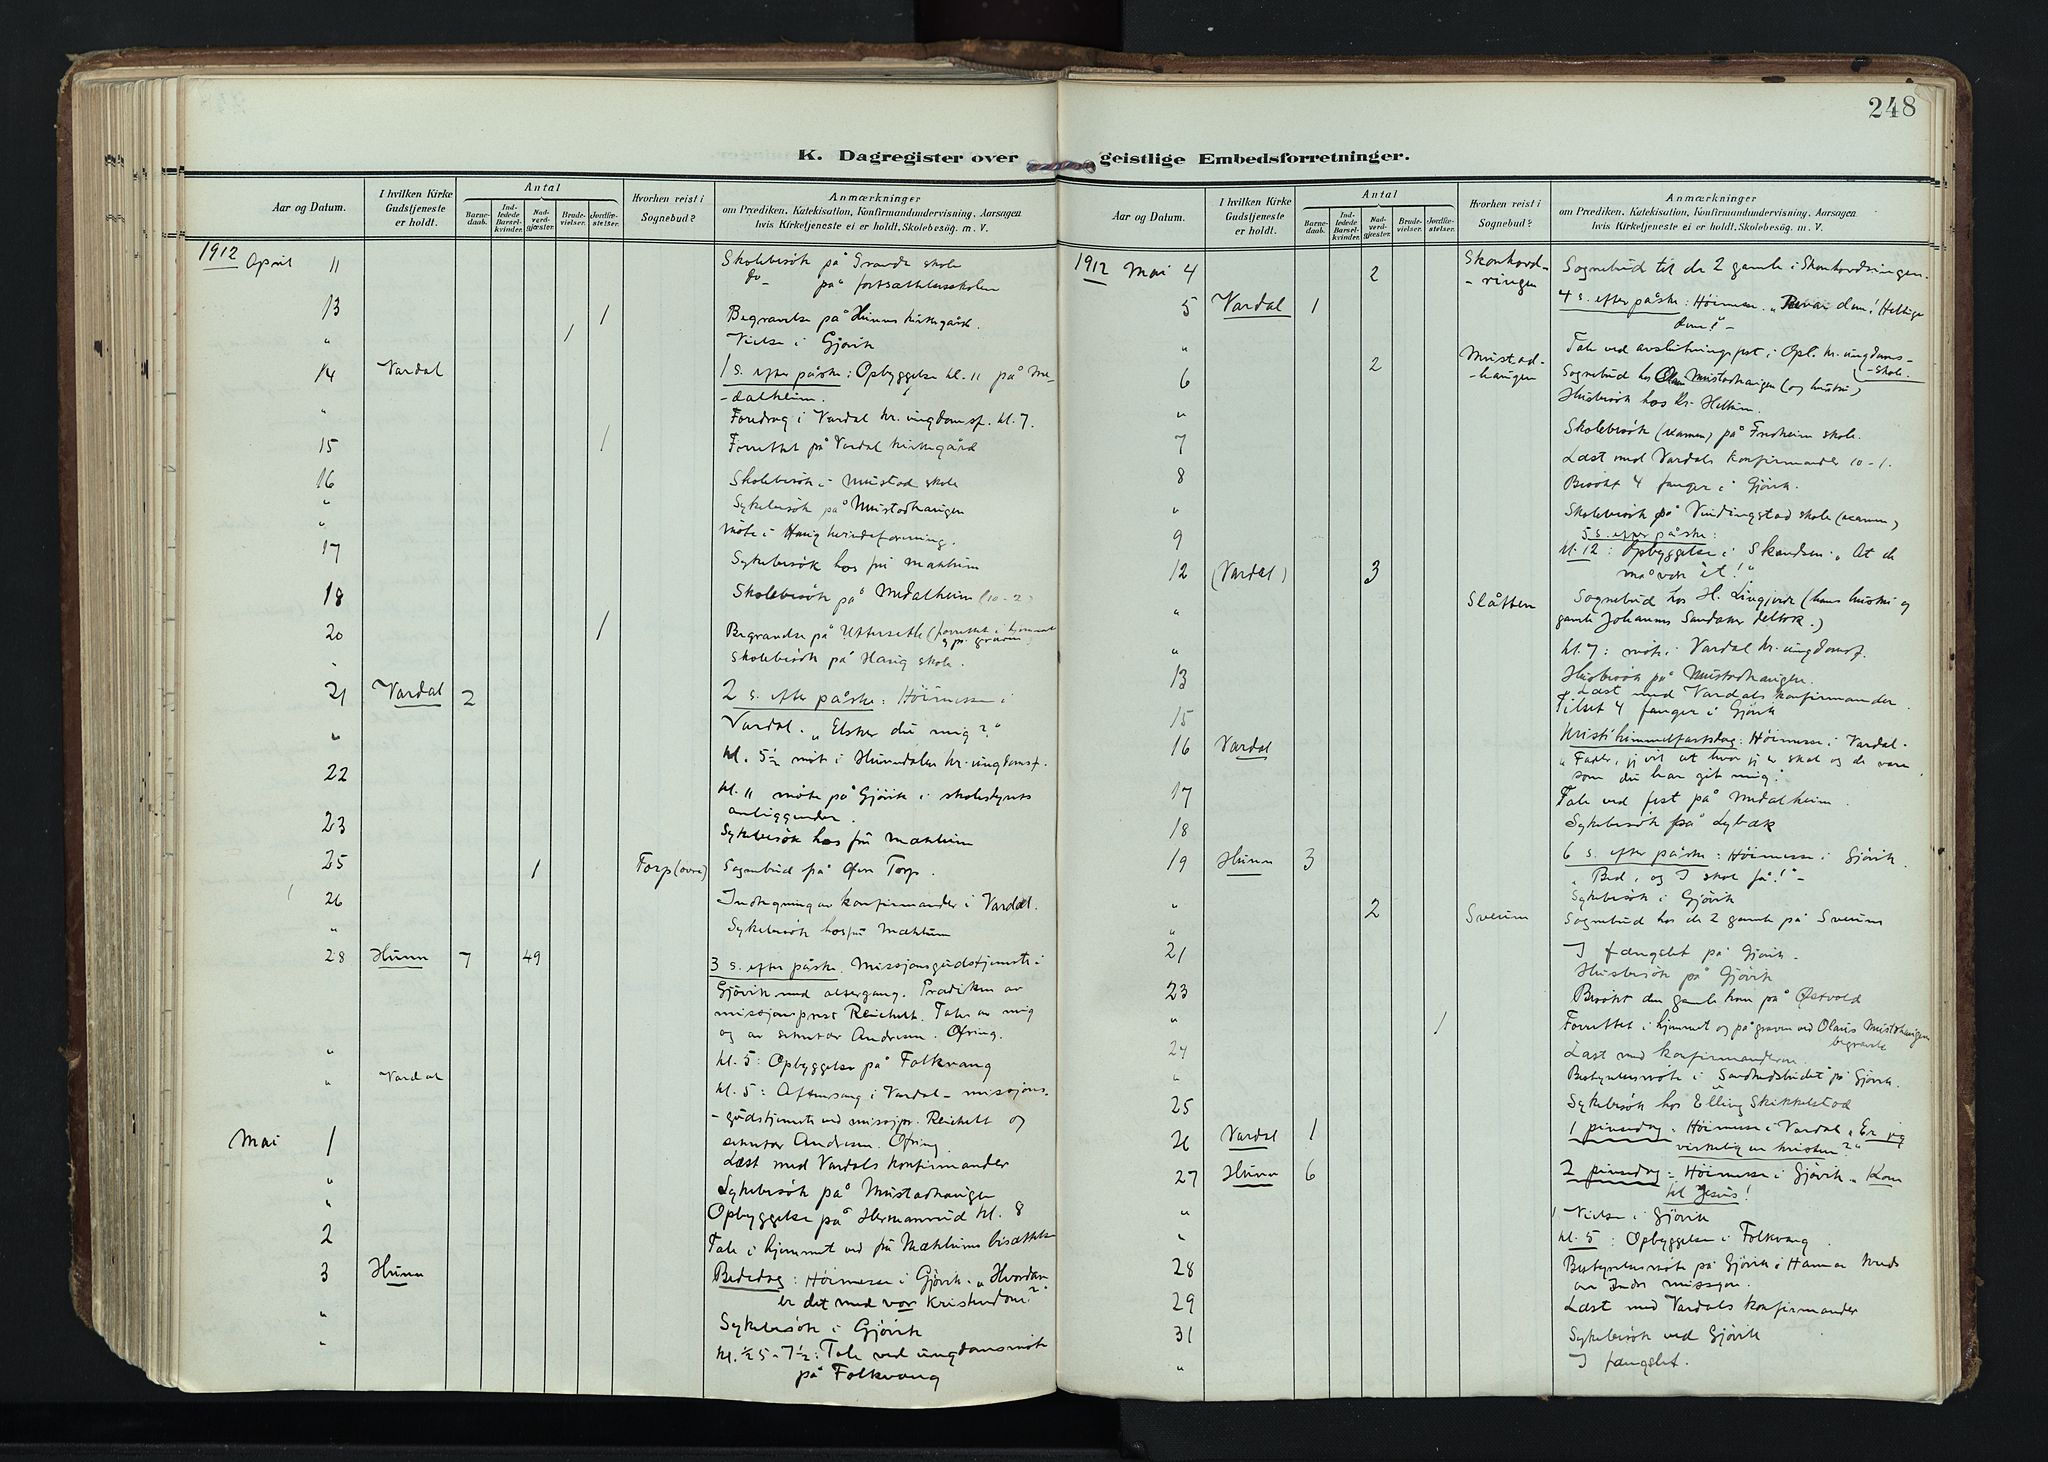 248
K. Dagregister over geistlige Embedsforretninger.
Aar og Datum.
I hvilken Kirke Gudstjeneste er holdt.
Antal
Barnedaab.
Indledede Barselkvinder.
Nadverdgjæster.
Brudevielser.
Jordfæstelser.
Hvorhen reist i Sognebud?
Anmærkninger
om Prædiken, Katekisation, Konfirmandundervisning, Aarsagen
hvis Kirketjeneste ei er holdt, Skolebesøg m. V.
1912 April 11 Skolebesök på Grande skole
do på fortsættelsesskolen
13 1 Begravelse på Hunns kirkegård.
" 1 Vielse i Gjövik
14 Vardal 1 s. efter påske: Opbyggelse kl. 11 på Me-
-dalheim.
" Foredrag i Vardal kr. ungdomsf. kl. 7.
15 1 Forrettet på Vardal kirkegård
16 Skolebesök i Mustad skole
" Sykebesök på Mustadhaugen
" Möte i Haug kvindeforening.
17 Sykebesök hos fru Mæhlum
18 Skolebesök på Medalheim (10-2)
20 1 Begravelse på (forrettet i hjemmet
og på graven)
Skolebesök på Haug skole.
21 Vardal 2 2 s. efter påske: Höimesse i
Vardal. "Elsker du mig?"
" kl. 5½ möte i Hunndalen kr. ungdomsf.
22 kl. 11 möte på Gjövik i skolestyrets
anliggender.
23 Sykebesök hos fru Mæhlum
25 1 Torp (övre) Sognebud på Övre Torp.
26 Indtegning av konfirmander i Vardal.
" Sykebesök hos fru Mæhlum
28 Hunn 7 49 3 s. efter påske. Missjonsgudstjeneste i
Gjövik med altergang. Prædiken av
missjonsprest Reichelt. Tale av mig
og av sekretær Andresen. Ofring.
" kl. 5: Opbyggelse på Folkvang
" Vardal kl. 5: Aftensang i Vardal - missjons-
-gudstjeneste ved missjpr. Reichelt og
sekretær Andresen. Ofring.
Mai 1 Læst med Vardals konfirmander
" Sykebesök på Mustadhaugen
" Opbyggelse på Hermanrud kl. 8
2 Tale i hjemmet ved fru Mæhlums bisættelse
3 Hunn Bededag: Höimesse i Gjövik. "Hvordan
er det med vor kristendom?"
" Sykebesök i Gjövik
" kl. ½5-7½: Tale ved ungdomsmöte
på Folkvang
Aar og Datum.
I hvilken Kirke Gudstjeneste er holdt.
Antal
Barnedaab.
Indledede Barselkvinder.
Nadverdgjæster.
Brudevielser.
Jordfæstelser.
Hvorhen reist i Sognebud?
Anmærkninger
om Prædiken, Katekisation, Konfirmandundervisning, Aarsagen
hvis Kirketjeneste ei er holdt, Skolebesøg m. V.
1912 Mai 4 2 Sognebud til de 2 gamle i
5 Vardal 1 4 s. efter påske: Höimesse. "Bevar dem! Hellige
dem!" -
" Tale ved avslutningsfest i Opl. kr. ungdoms-
-skole.
6 2 Mustad-
-haugen Sognebud hos Olaus Mustadhaugen (og hustru)
" Husbesök hos Kr.
7 Skolebesök (examen) på Fredheim skole.
8 Læst med Vardals konfirmander 10-1.
" Besökt 4 fanger i Gjövik.
9 Skolebesök på Vindingstad skole (examen)
5 s. efter påske:
12 (Vardal) 3 kl. 12: Opbyggelse i Skanden. "At de
må være et!"
" Slåtten Sognebud hos H. (hans hustru og
gamle Johannes deltok.)
" kl. 7: möte i Vardal kr. ungdomsf.
13 Husbesök på Mustadhaugen.
" Læst med Vardals konfirmander.
15 Tilset 4 fanger i Gjövik
16 Vardal Kristi himmelfartsdag: Höimesse i Vardal.
"Fader, jeg vil at hvor jeg er skal og de være
som du har git mig."
17 Tale ved fest på Medalheim.
18 Sykebesök på Lybæk
19 Hunn 3 6 s. efter påske: Höimesse i Gjövik.
"Bed, og I skal få!" -
" Sykebesök i Gjövik
" 2 Sveum Sognebud hos de 2 gamle på Sveum
21 I fængslet på Gjövik.
Husbesök på Gjövik
23 Besökt den gamle kone på Østvold
" 1 Forrettet i hjemmet og på graven ved Olaus Mustadhaugens
begravelse
24 Læst med konfirmanderne.
" Bestyrelsesmöte i på Gjövik.
25 Sykebesök hos Elling Skikkelstad
26 Vardal 1 1 pinsedag. Höimesse i Vardal "Er jeg
virkelig en kristen?"
27 Hunn 6 2 pinsedag: Höimesse i Gjövik. "Kom
til Jesus!
" 1 Vielse i Gjövik
" kl. 5: Opbyggelse i Folkvang.
28 Bestyrelsesmöte på Gjövik i Hamar kreds
av Indre missjon.
29 Læst med Vardals konfirmander
31 Sykebesök ved Gjövik
" I fængslet.